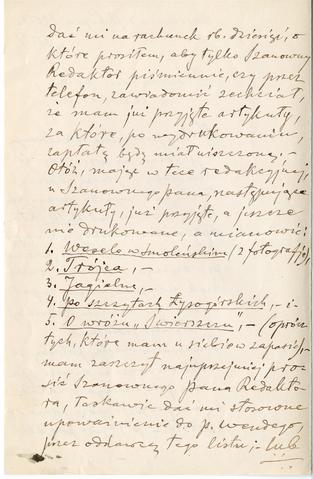 dać mi na rachunek rb. dziesięć, o
które prosiłem, aby tylko Szanowny
Redaktor piśmiennie, czy przez
telefon, zawiadomić zechciał,
że mam już przyjęte artykuły,
za które, po wydrukowaniu,
zapłatę będę miał uiszczoną, –
Otóż, mając w tece redakcyjnej
u Szanownego Pana, następujące
artykuły, już przyjęte, a jeszcze
nie drukowane, a mianowicie:
1. Wesele w Smoleńskim (2 fotografje),
2. Trójca, –
3. Jagialne, –
4. po szczytach Łysogórskich, – i –
5. O wróżu „Świerszczu”, – (oprócz
tych, które mam u siebie w zapasie), –
mam zaszczyt najuprzejmiej pro-
sić Szanownego Pana Redakto-
ra, łaskawie dać mi stosowne
upoważnienie do p. Wendego,
przez oddawcę tego listu; – lub